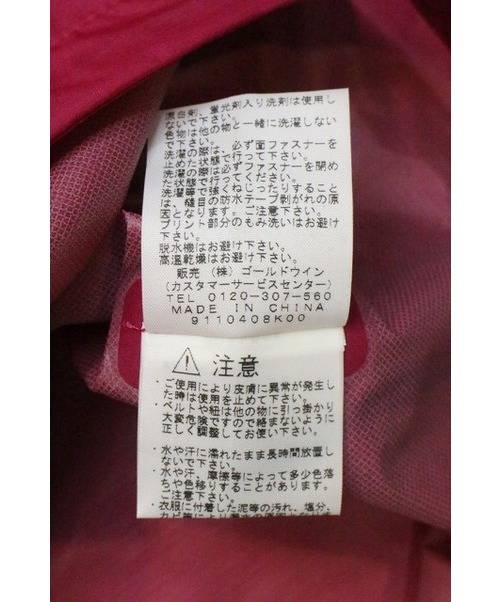 漂白剤、蛍光剤入り洗剤は使用し
ないで下さい。
色物は他の物と一緒に洗濯しない
で下さい。
洗濯の際は、必ず面ファスナーを
止めた状態で行って下さい。
洗濯の際は必ずファスナーを閉め
た状態で行ってください。
洗濯等で強くねじったりすること
は、縫目の防水テープ剥がれの原
因となります。ご注意下さい。
プリント部分のもみ洗いはお避け
下さい。
脱水機はお避け下さい。
高温乾燥はお避け下さい。
販売 (株) ゴールドウイン
(カスタマーサービスセンター)
TEL 0120-307-560
MADE IN CHINA
9110408K00
注意
・ご使用により皮膚に異常が発生し
た時は使用を止めて下さい。
・ベルトや紐は他の物に引っ掛かり
大変危険ですので絡まないように
正しく調整してお使い下さい。
・水や汗に濡れたまま長時間放置し
ないで下さい。
・水や汗、摩擦等によって多少色落
ちや色移りすることがあります。
ご注意下さい。
・衣服に付着した泥等の汚れ、塩分、